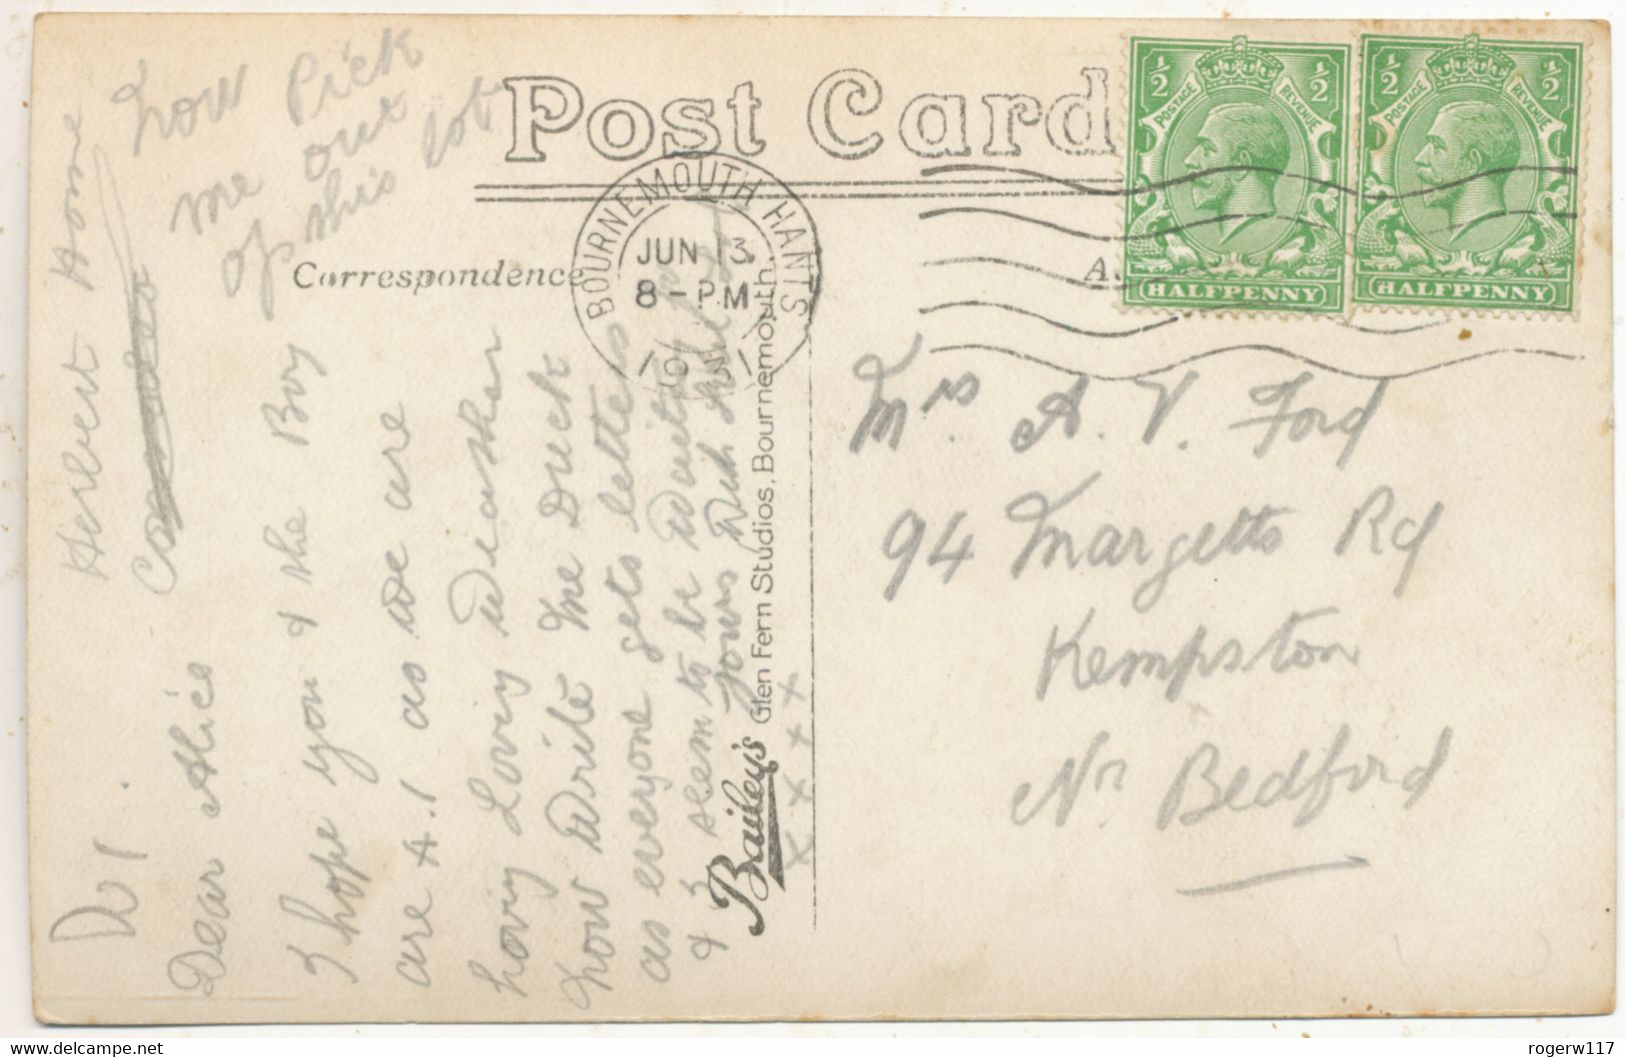 Post Card
Correspondence
BOURNEMOUTH HANTS
JUN 13
8 - PM
½ ½
POSTAGE REVENUE
HALFPENNY
½ ½
POSTAGE REVENUE
HALFPENNY
now Pick
me out
of this lot
Herbert Home
Dear Alice
I hope you & the Boy
are A.1 as we are
having Loving Weather
now Write me Quick
as everyone gets letters
& I seem to be Waiting
yours
x x x x
x x x
Bailey's Glen Fern Studios, Bournemouth.
Mrs A. V. Ford
94 Margetts Rd
Kempston
Nr Bedford
delcampe.net
rogerw117